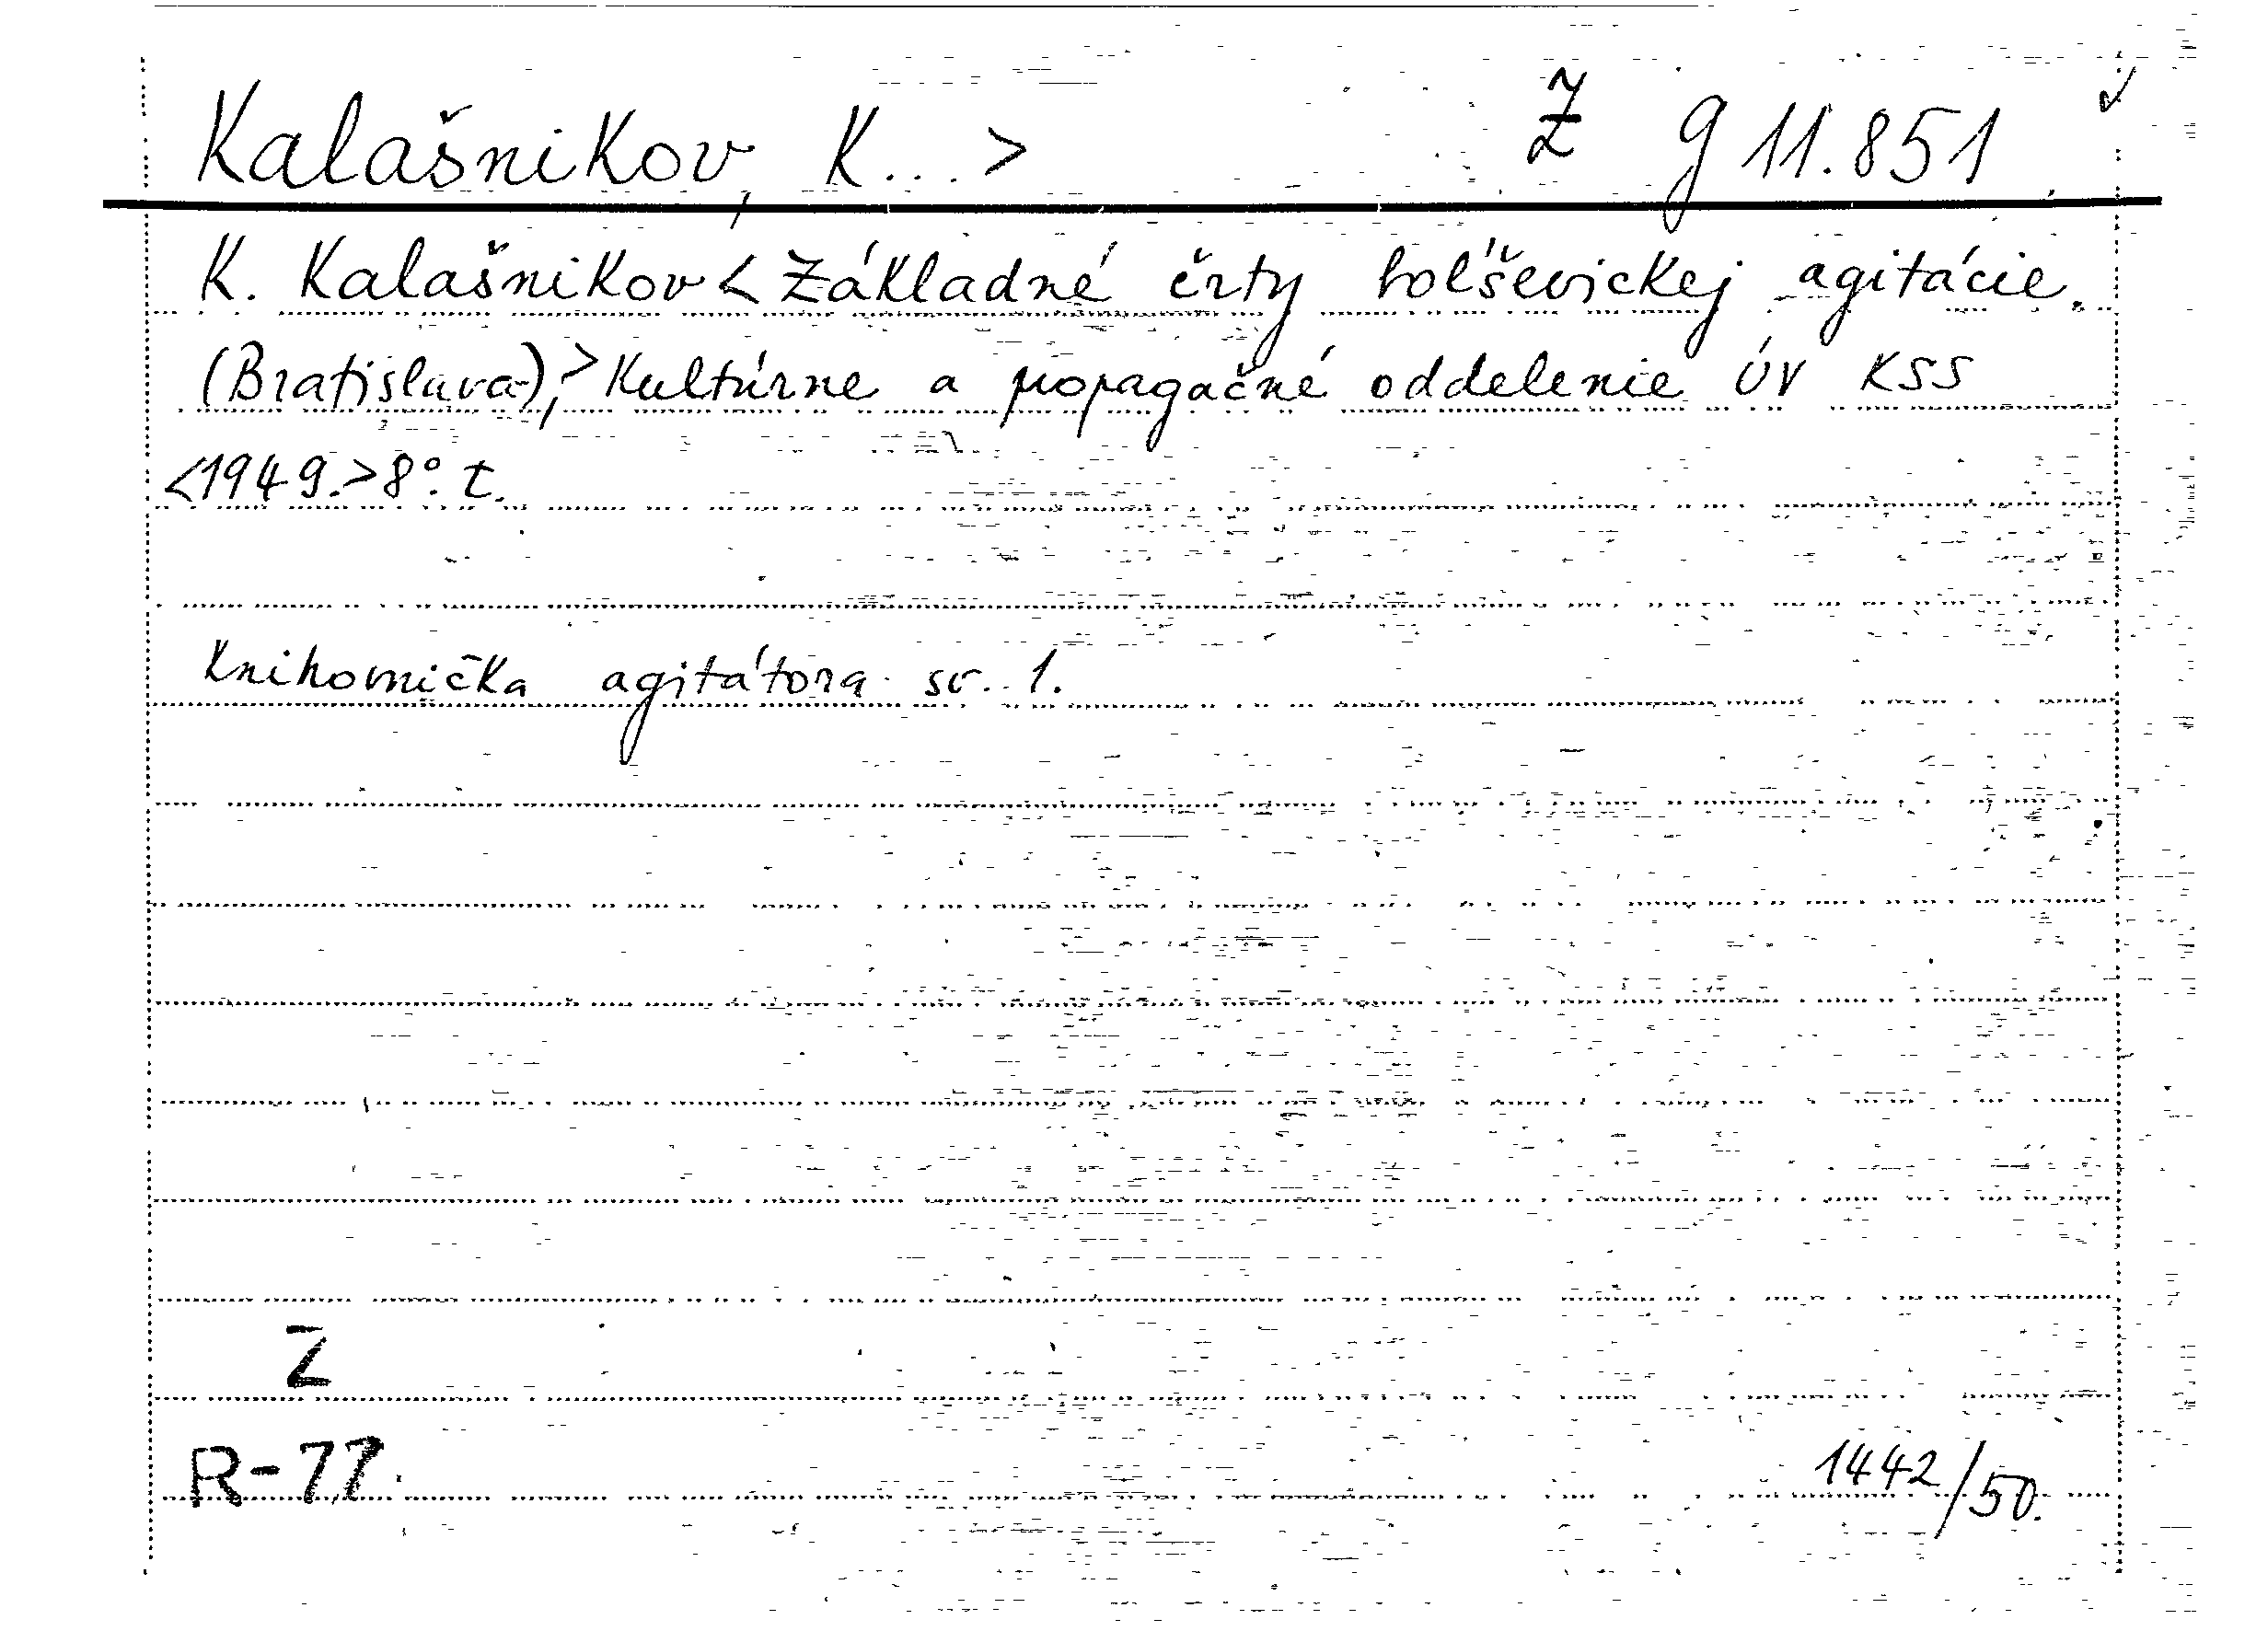 Kalašnikov, K...> Ž g 11.851 ✓
K. Kalašnikov < Základné črty bolševickej agitácie.
(Bratislava),> Kultúrne a propagačné oddelenie ÚV KSS
<1949.> 8°. t.
Knihovnička agitátora sv. 1.
Z
R-77.
1442/50.